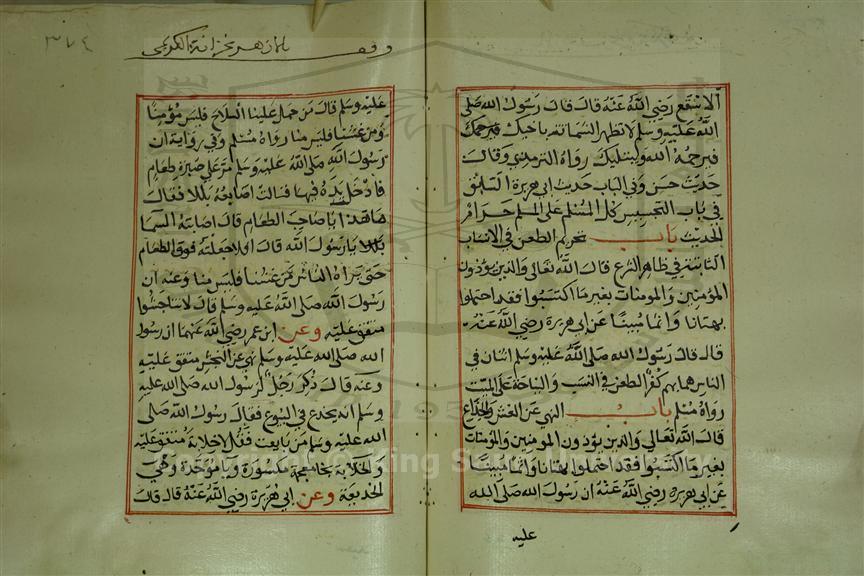 الاسقع رضي الله عنه قال قال رسول الله صلى
الله عليه وسلم لا تظهر الشماتة باخيك فيرحمك
فيرحمه الله ويبتليك رواه الترمذي وقال
حديث حسن وفي الباب حديث ابي هريرة السابق
في باب التجسيس كل المسلم على المسلم حرام
الحديث باب تحريم الطعن في الانساب
الثابتة في ظاهر الشرع قال الله تعالى والذين يؤذون
المؤمنين والمومنات بغير ما اكتسبوا فقد احتملوا
بهتانا واثما مبينا عن ابي هريرة رضي الله عنه
قال قال رسول الله صلى الله عليه وسلم اثنتان في
الناس هما بهم كفر الطعن في النسب والنياحة على الميت
رواه مسلم باب النهي عن الغش والخداع
قال الله تعالى والذين يؤذون المومنين والمومنات
بغير ما اكتسبوا فقد احتملوا بهتانا واثما مبينا
عن ابي هريرة رضي الله عنه ان رسول الله صلى الله
عليه
٣٧٤
عليه وسلم قال من حمل علينا السلاح فليس مؤمنا
ومن غشنا فليس منا رواه مسلم وفي رواية ان
رسول الله صلى الله عليه وسلم مر على صبرة طعام
فادخل يده فيها فنالت اصابعه بللا فقال
ما هذا يا صاحب الطعام قال اصابته السما
بللا يا رسول الله قال افلا جعلته فوق الطعام
حتى يراه الناس من غشنا فليس منا وعنه ان
رسول الله صلى الله عليه وسلم قال لا تناجشوا
متفق عليه وعن ابن عمر رضي الله عنهما ان رسول
الله صلى الله عليه وسلم نهى عن النجش متفق عليه
وعنه قال ذكر رجل لرسول الله صلى الله عليه
وسلم انه يخدع في البيوع فقال رسول الله صلى
الله عليه وسلم من بايعت فقل لا خلابة متفق عليه
والخلابة بخا معجمة مكسورة وبا موحدة وهي
الخديعة وعن ابي هريرة رضي الله عنه قال قال